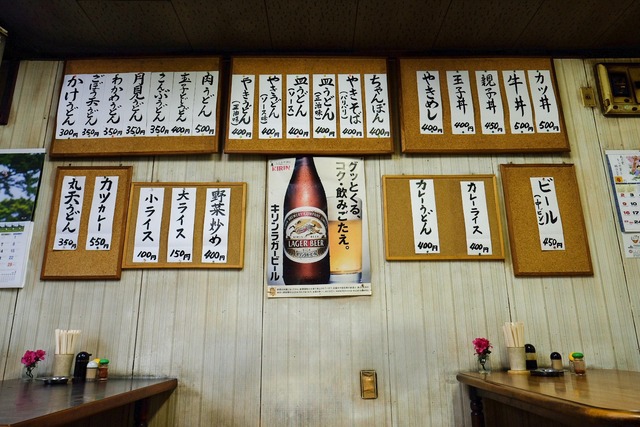 肉うどん 500円
玉子うどん 400円
こんぶうどん 350円
月見うどん 350円
わかめうどん 350円
ごぼう天うどん 350円
かけうどん 300円
ちゃんぽん 400円
やきそば(パリパリ) 400円
皿うどん(正油味) 400円
皿うどん(ソース) 400円
やきうどん(ソース味) 400円
やきうどん(正油味) 400円
カツ丼 500円
牛丼 500円
親子丼 450円
玉子丼 400円
やきめし 400円
カツカレー 550円
丸天うどん 350円
野菜炒め 400円
大ライス 150円
小ライス 100円
KIRIN
グッとくる、
コク・飲みごたえ。
キリンラガービール
LAGER BEER
カレーライス 400円
カレーうどん 400円
ビール(中ビン) 450円